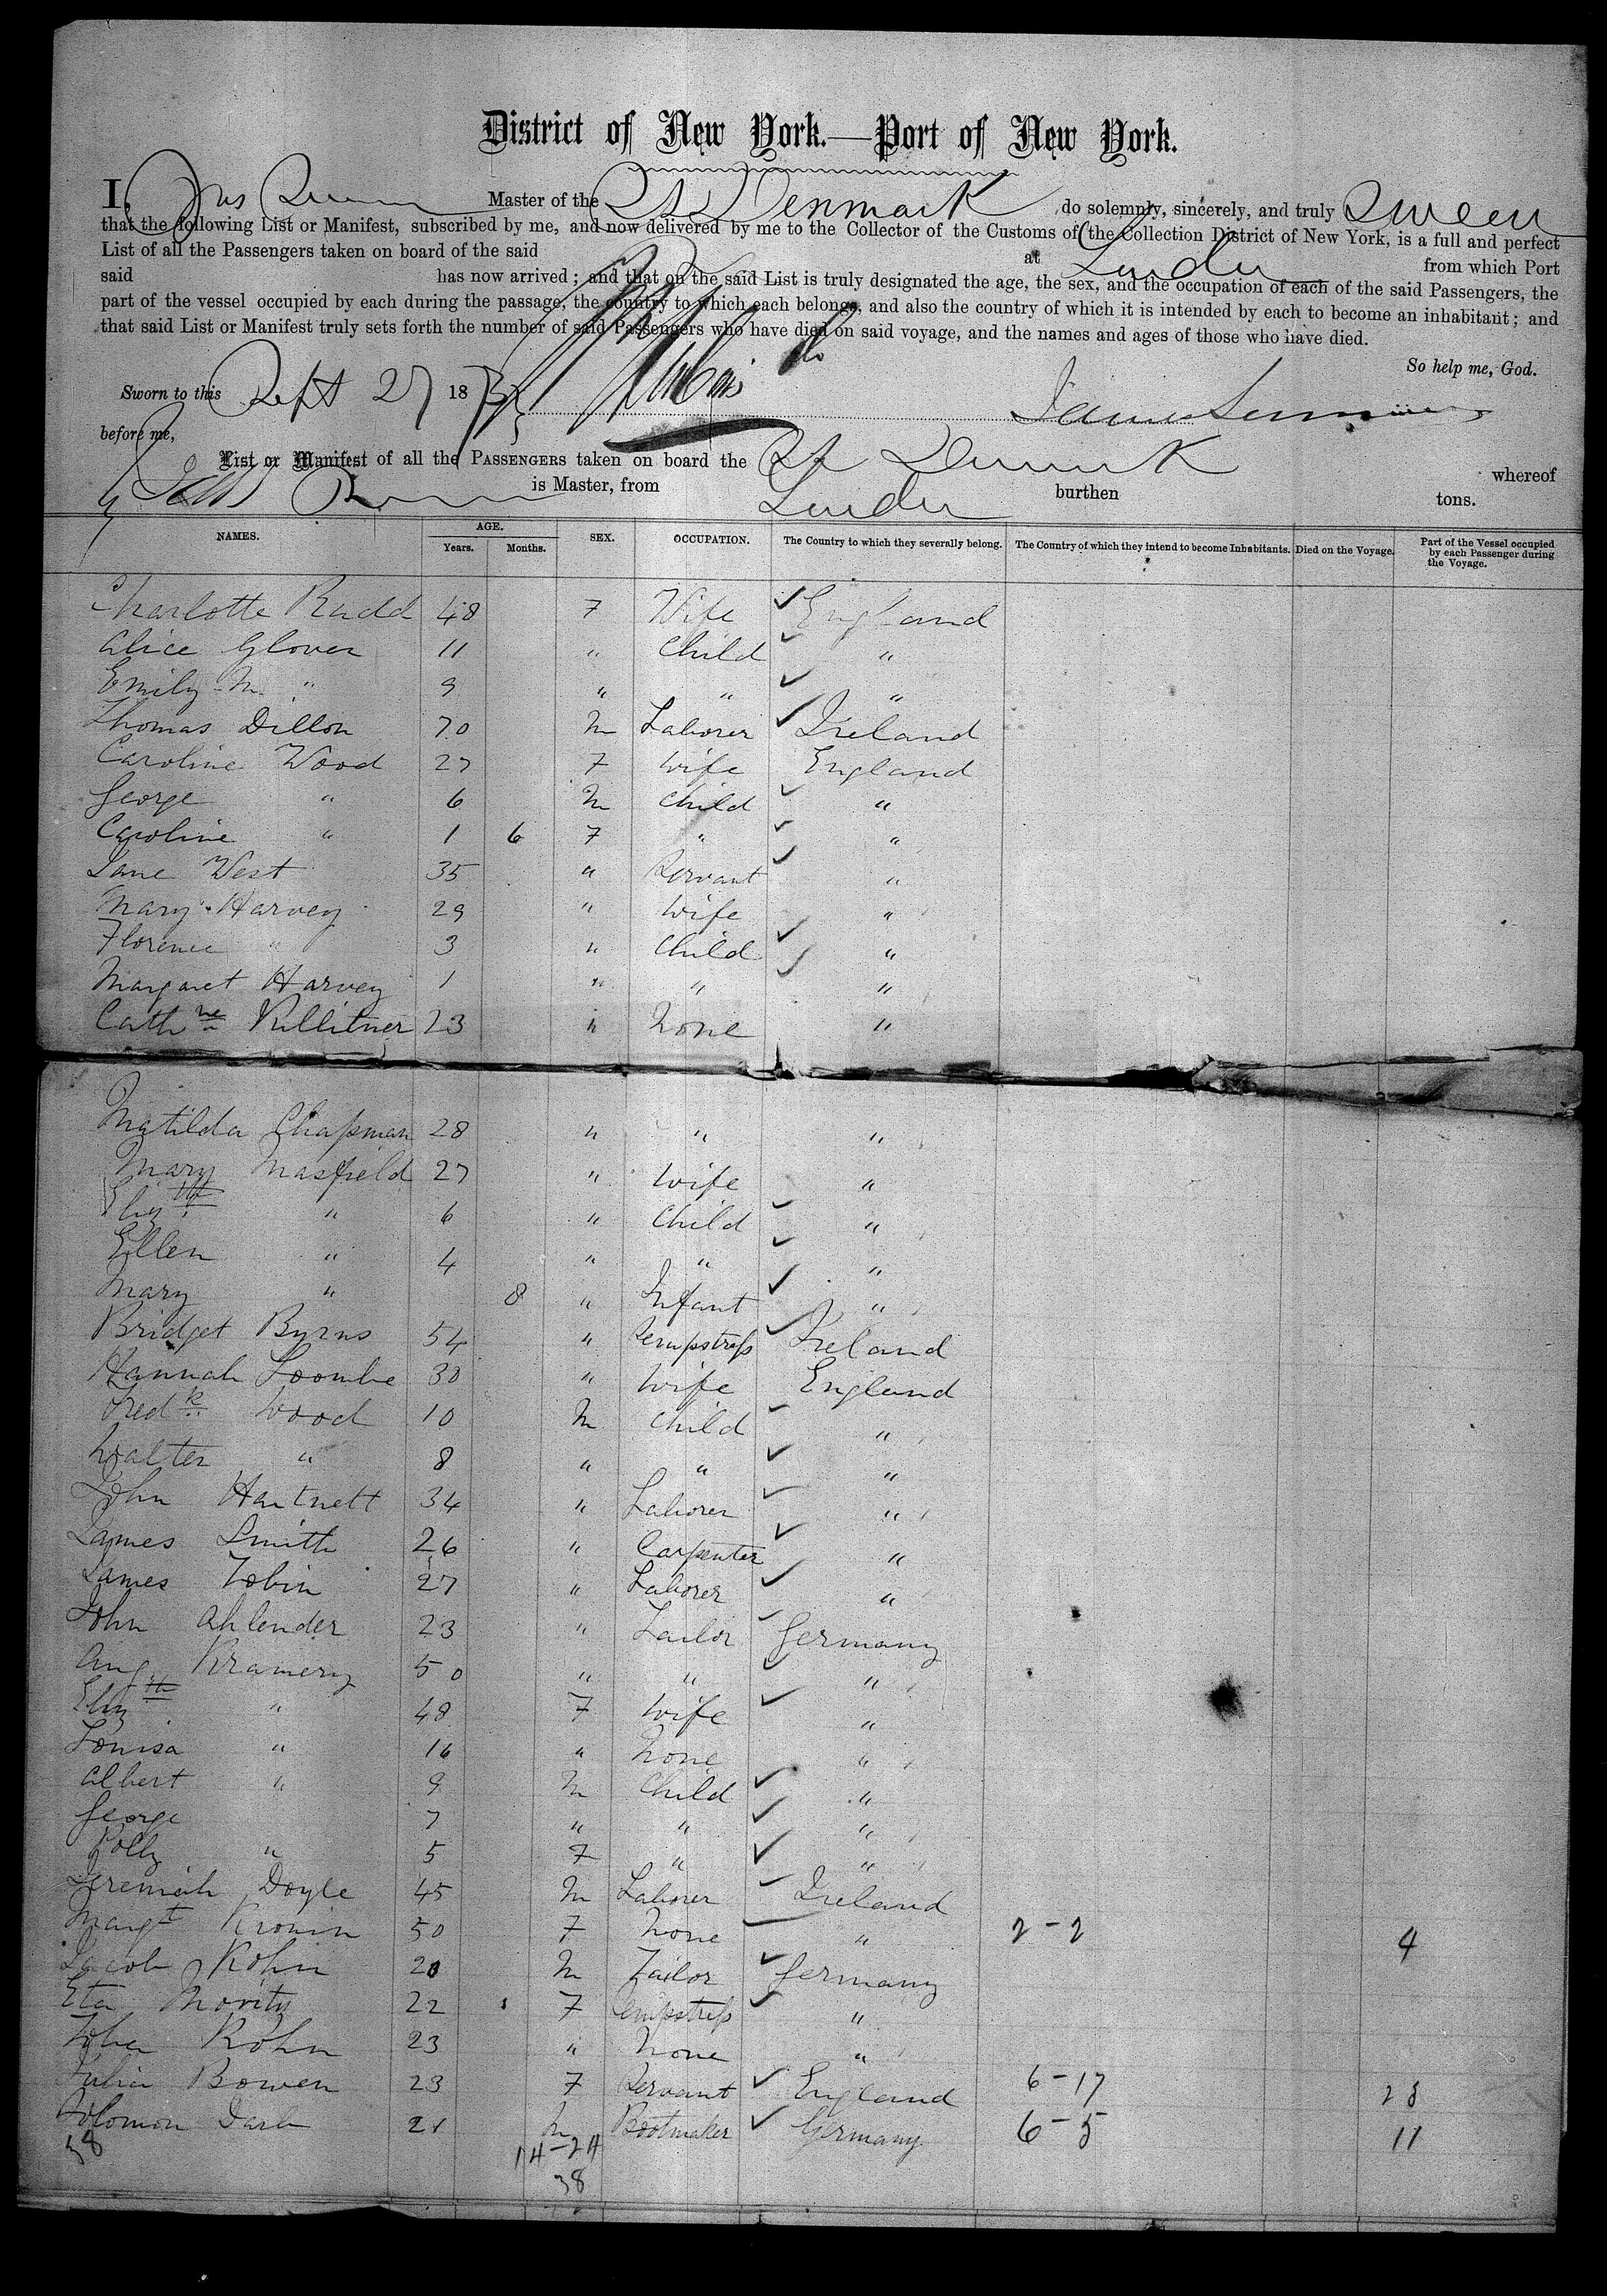 District of New York.—Port of New York.
I, Jas Master of the SS Denmark do solemnly, sincerely, and truly Swear
that the following List or Manifest, subscribed by me, and now delivered by me to the Collector of the Customs of the Collection District of New York, is a full and perfect
List of all the Passengers taken on board of the said at London from which Port
said has now arrived; and that on the said List is truly designated the age, the sex, and the occupation of each of the said Passengers, the
part of the vessel occupied by each during the passage, the country to which each belongs, and also the country of which it is intended by each to become an inhabitant; and
that said List or Manifest truly sets forth the number of said Passengers who have died on said voyage, and the names and ages of those who have died.
So help me, God.
Sworn to this Sept 27 18
before me,
List or Manifest of all the PASSENGERS taken on board the SS Denmark whereof
is Master, from London burthen tons.
NAMES. AGE. Years. Months. SEX. OCCUPATION. The Country to which they severally belong. The Country of which they intend to become Inhabitants. Died on the Voyage. Part of the Vessel occupied by each Passenger during the Voyage.
Charlotte Rudd 48 F Wife England
Alice Glover 11 " Child "
Emily M. " 9 " " "
Thomas Dillon 70 M Laborer Ireland
Caroline Wood 27 F Wife England
George " 6 M Child "
Caroline " 1 6 F " "
Jane West 35 " Servant "
Mary Harvey 29 " Wife "
Florence " 3 " Child "
Margaret Harvey 1 " " "
Cathne Killitner 23 " None "
Matilda Chapman 28 " " "
Mary Masfield 27 " Wife "
Elizth " 6 " Child "
Ellen " 4 " " "
Mary " 8 " Infant "
Bridget Byrns 54 " Sempstress Ireland
Hannah Loombe 30 " Wife England
Fredk Wood 10 M Child "
Walter " 8 " " "
John Hartnett 34 " Laborer "
James Smith 26 " Carpenter "
James Tobin 27 " Laborer "
John Ahlender 23 " Tailor Germany
Aug Kramery 50 " " "
Elizth " 48 F Wife "
Louisa " 16 " None "
Albert " 9 M Child "
George 7 " " "
Polly " 5 F " "
Jeremiah Doyle 45 M Laborer Ireland
Margt Kronin 50 F None " 2-2 4
Jacob Kohn 20 M Tailor Germany
Eta Moritz 22 F Sempstress "
Kohn 23 " None "
Julia Bowen 23 F Servant England 6-17 23
Solomon Darb 21 M Bootmaker Germany 6-5 11
38 14-24
38